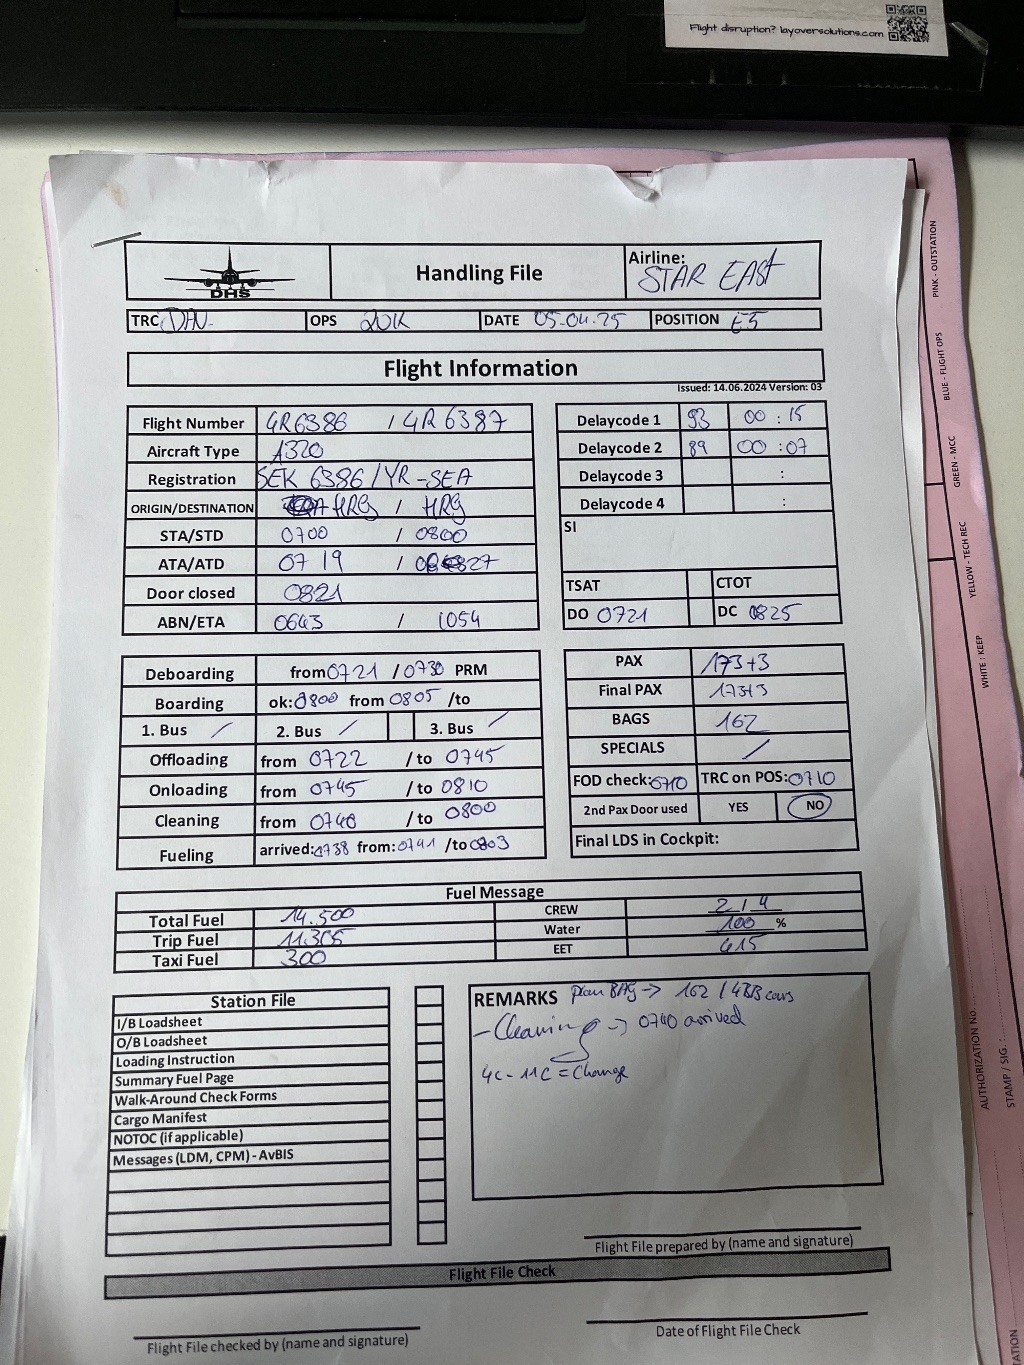 Flight disruption? layoversolutions.com
DHS
Handling File
Airline:
STAR EAST
TRC
OPS
DATE 05.04.25
POSITION E5
Flight Information
Issued: 14.06.2024 Version: 03
Flight Number 4R6386 / 4R6387
Aircraft Type A320
Registration SEK 6386 / YR-SEA
ORIGIN/DESTINATION HRG / HRG
STA/STD 0700 / 0800
ATA/ATD 0719 / 0827
Door closed 0821
ABN/ETA 0643 / 1054
Delaycode 1 93 00 : 15
Delaycode 2 89 00 : 07
Delaycode 3 :
Delaycode 4 :
SI
TSAT CTOT
DO 0721 DC 0825
Deboarding from 0721 / 0730 PRM
Boarding ok: 0800 from 0805 /to
1. Bus / 2. Bus / 3. Bus /
Offloading from 0722 /to 0745
Onloading from 0745 /to 0810
Cleaning from 0740 /to 0800
Fueling arrived: 0738 from: 0741 /to 0803
PAX 173+3
Final PAX 173+3
BAGS 162
SPECIALS /
FOD check: 0710 TRC on POS: 0710
2nd Pax Door used YES NO
Final LDS in Cockpit:
Fuel Message
Total Fuel 14.500 CREW 2/4
Trip Fuel Water 100 %
Taxi Fuel 300 EET 415
Station File
I/B Loadsheet
O/B Loadsheet
Loading Instruction
Summary Fuel Page
Walk-Around Check Forms
Cargo Manifest
NOTOC (if applicable)
Messages (LDM, CPM) - AvBIS
REMARKS Plan BAG → 162 / 4BB
- Cleaning → 0740 arrived
4C - 11C = Change
Flight File prepared by (name and signature)
Flight File Check
Flight File checked by (name and signature)
Date of Flight File Check
PINK - OUTSTATION
BLUE - FLIGHT OPS
GREEN - MCC
YELLOW - TECH REC
WHITE : KEEP
AUTHORIZATION No.
STAMP / SIG. :